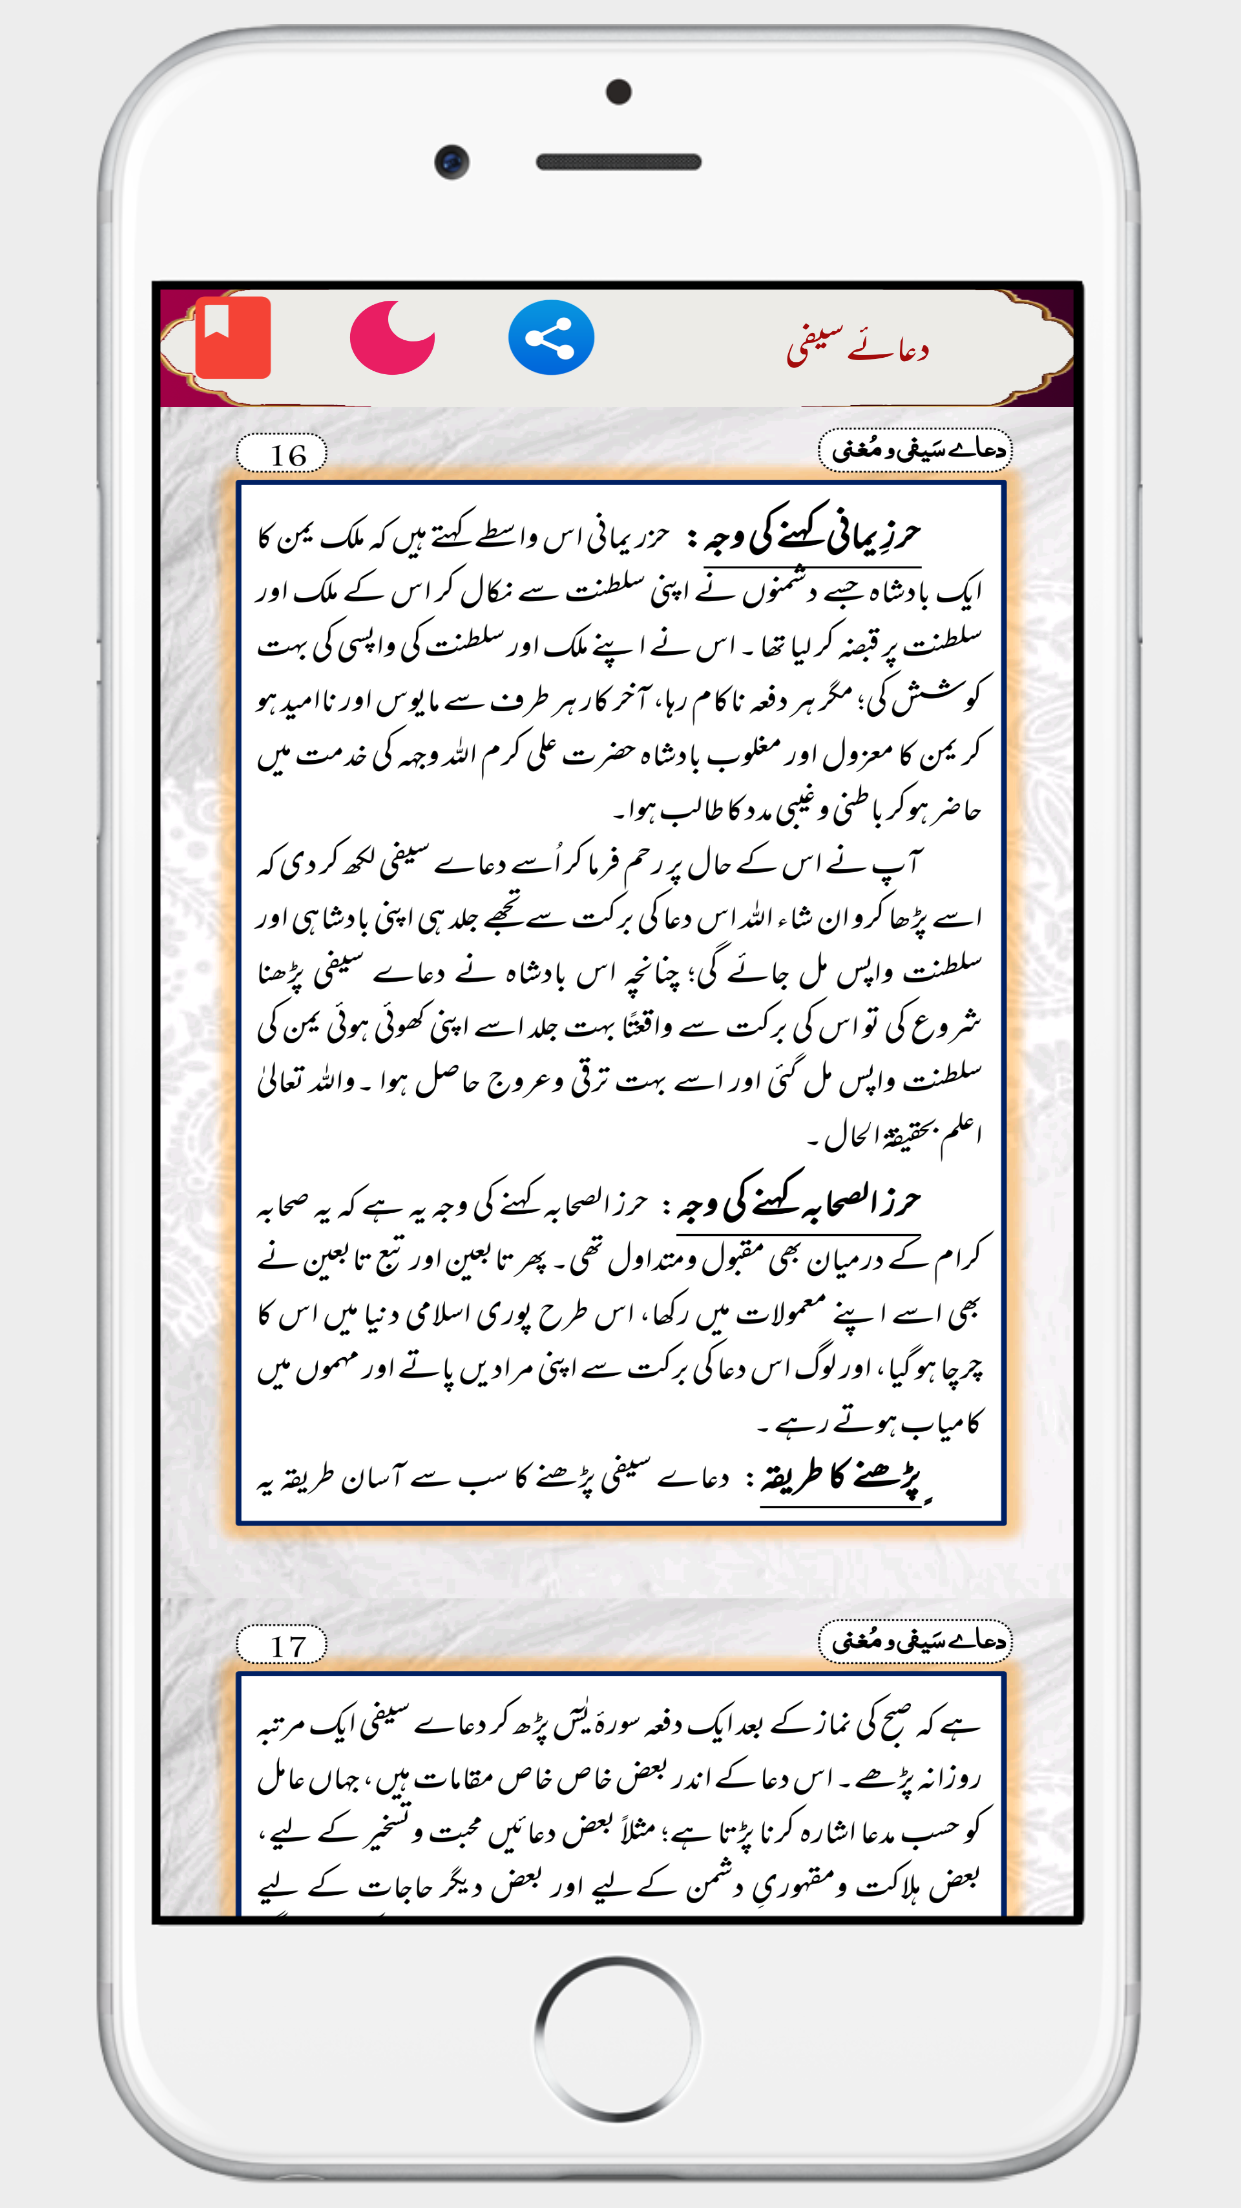 دعائے سیفی
دعاے سَیفی و مُغنی
16
حرزِ یمانی کہنے کی وجہ : حزر یمانی اس واسطے کہتے ہیں کہ ملک یمن کا
ایک بادشاہ جسے دشمنوں نے اپنی سلطنت سے نکال کر اس کے ملک اور
سلطنت پر قبضہ کر لیا تھا ۔ اس نے اپنے ملک اور سلطنت کی واپسی کی بہت
کوشش کی؛ مگر ہر دفعہ ناکام رہا، آخر کار ہر طرف سے مایوس اور ناامید ہو
کر یمن کا معزول اور مغلوب بادشاہ حضرت علی کرم اللہ وجہہ کی خدمت میں
حاضر ہو کر باطنی و غیبی مدد کا طالب ہوا۔
آپ نے اس کے حال پر رحم فرما کر اُسے دعاے سیفی لکھ کر دی کہ
اسے پڑھا کرو ان شاء اللہ اس دعا کی برکت سے تجھے جلد ہی اپنی بادشاہی اور
سلطنت واپس مل جائے گی؛ چنانچہ اس بادشاہ نے دعاے سیفی پڑھنا
شروع کی تو اس کی برکت سے واقعتًا بہت جلد اسے اپنی کھوئی ہوئی یمن کی
سلطنت واپس مل گئی اور اسے بہت ترقی وعروج حاصل ہوا ۔ واللہ تعالیٰ
اعلم بحقیقۃ الحال ۔
حرز الصحابہ کہنے کی وجہ : حرز الصحابہ کہنے کی وجہ یہ ہے کہ یہ صحابہ
کرام کے درمیان بھی مقبول ومتداول تھی۔ پھر تابعین اور تبع تابعین نے
بھی اسے اپنے معمولات میں رکھا، اس طرح پوری اسلامی دنیا میں اس کا
چرچا ہو گیا، اور لوگ اس دعا کی برکت سے اپنی مرادیں پاتے اور مہموں میں
کامیاب ہوتے رہے ۔
پڑھنے کا طریقہ : دعاے سیفی پڑھنے کا سب سے آسان طریقہ یہ
دعاے سَیفی و مُغنی
17
ہے کہ صبح کی نماز کے بعد ایک دفعہ سورۂ یٰسٓ پڑھ کر دعاے سیفی ایک مرتبہ
روزانہ پڑھے۔ اس دعا کے اندر بعض خاص خاص مقامات ہیں، جہاں عامل
کو حسب مدعا اشارہ کرنا پڑتا ہے؛ مثلاً بعض دعائیں محبت وتسخیر کے لیے،
بعض ہلاکت ومقہوریِ دشمن کے لیے اور بعض دیگر حاجات کے لیے